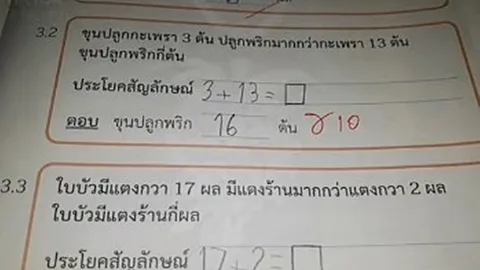 3.2 ขุนปลูกกะเพรา 3 ต้น ปลูกพริกมากกว่ากะเพรา 13 ต้น
ขุนปลูกพริกกี่ต้น
ประโยคสัญลักษณ์ 3+13=□
ตอบ ขุนปลูกพริก 16 ต้น
3.3 ใบบัวมีแตงกวา 17 ผล มีแตงร้านมากกว่าแตงกวา 2 ผล
ใบบัวมีแตงร้านกี่ผล
ประโยคสัญลักษณ์ 17+2=□